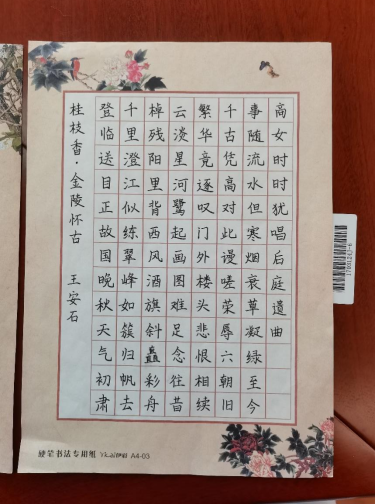 桂枝香·金陵怀古 王安石
登临送目正故国晚秋天气初肃
千里澄江似练翠峰如簇归帆去
棹残阳里背西风酒旗斜矗彩舟
云淡星河鹭起画图难足念往昔
繁华竞逐叹门外楼头悲恨相续
千古凭高对此谩嗟荣辱六朝旧
事随流水但寒烟衰草凝绿至今
商女时时犹唱后庭遗曲
硬笔书法专用纸 A4-03